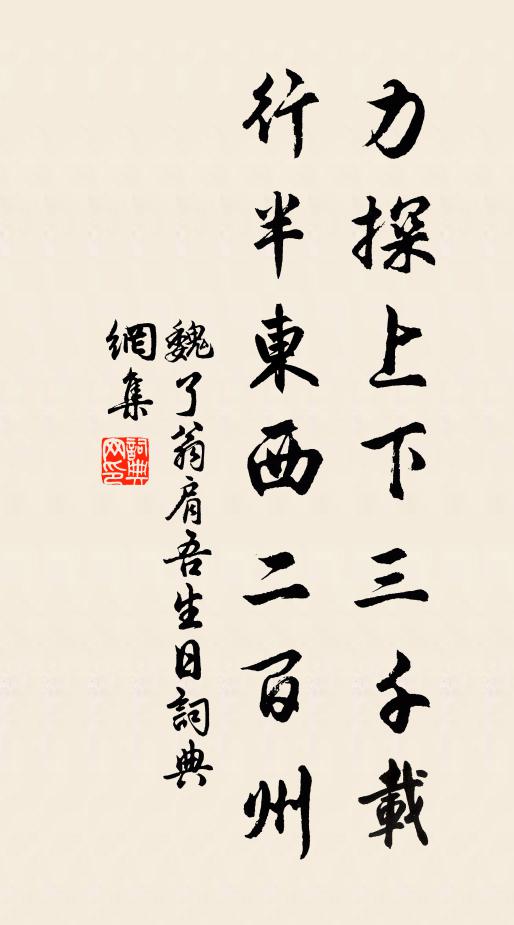 力探上下三千載
行半東西二百州
魏了翁肩吾生日詞典
網集
詞典
网印